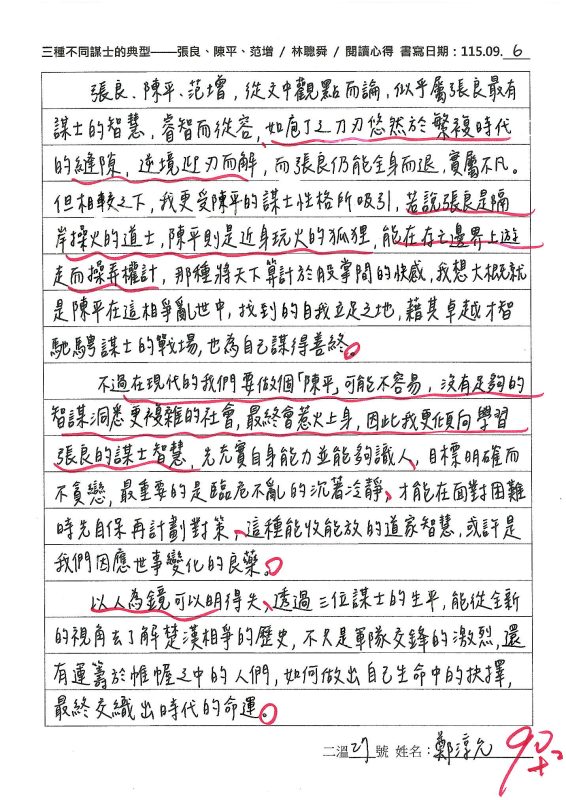 三種不同謀士的典型——張良、陳平、范增 / 林聰舜 / 閱讀心得 書寫日期：115.09. 6
張良、陳平、范增，從文中觀點而論，似乎屬張良最有
謀士的智慧，睿智而從容，如庖丁之刀刃悠然於繁複時代
的縫隙，逆境迎刃而解，而張良仍能全身而退，實屬不凡。
但相較之下，我更受陳平的謀士性格所吸引，若說張良是隔
岸操火的道士，陳平則是近身玩火的狐狸，能在存亡邊界上遊
走而操弄權計，那種將天下算計於股掌間的快感，我想大概就
是陳平在這相爭亂世中，找到的自我立足之地，藉其卓越才智
馳騁謀士的戰場，也為自己謀得善終。
不過在現代的我們要做個「陳平」可能不容易，沒有足夠的
智謀洞悉更複雜的社會，最終會惹火上身，因此我更傾向學習
張良的謀士智慧，先充實自身能力並能夠識人、目標明確而
不貪戀，最重要的是臨危不亂的沉著冷靜、才能在面對困難
時先自保再計劃對策、這種能收能放的道家智慧，或許是
我們因應世事變化的良藥。
以人為鏡可以明得失、透過三位謀士的生平，能從全新
的視角去了解楚漢相爭的歷史，不只是軍隊交鋒的激烈，還
有運籌於帷幄之中的人們，如何做出自己生命中的抉擇，
最終交織出時代的命運。
二溫 27 號 姓名：鄭淳允
90+